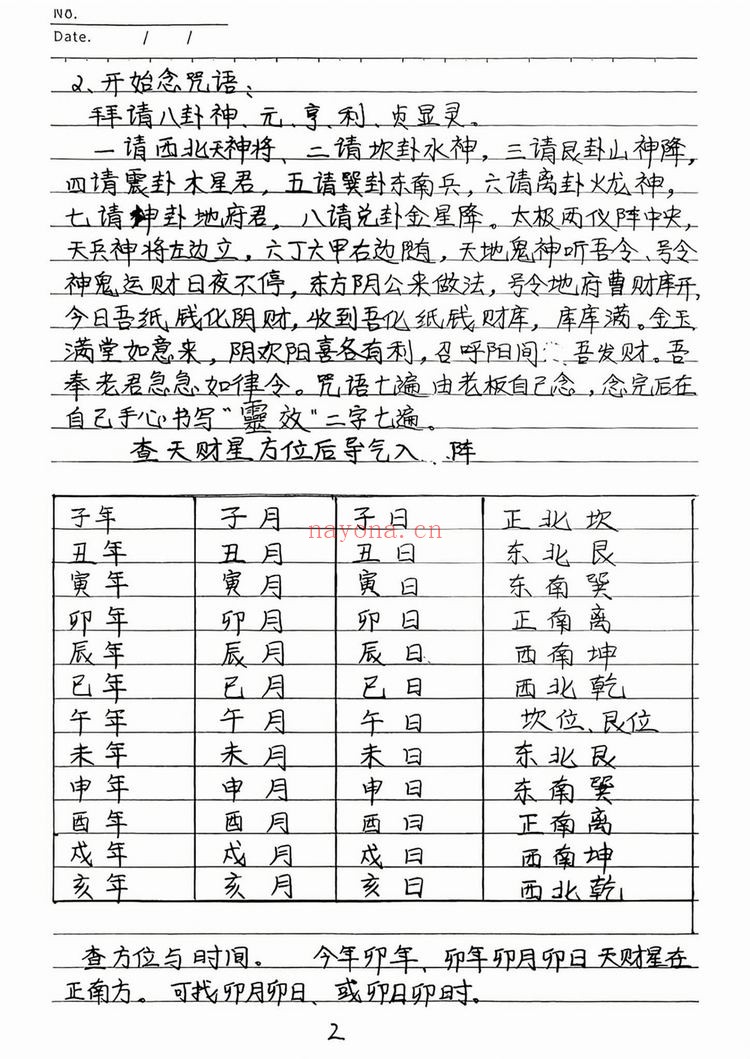 No.
Date. / /
2、开始念咒语：
拜请八卦神、元、亨、利、贞显灵。
一请西北天神将、二请坎卦水神，三请艮卦山神降，
四请震卦木星君，五请巽卦东南兵，六请离卦火龙神，
七请坤卦地府君，八请兑卦金星降。太极两仪阵中央，
天兵神将左边立，六丁六甲右边随，天地鬼神听吾令、号令
神鬼运财日夜不停，东方阴公来做法，号令地府曹财库开，
今日吾纸钱化阴财，收到吾化纸钱财库，库库满。金玉
满堂如意来，阴欢阳喜各有利，召呼阳间吾发财。吾
奉老君急急如律令。咒语七遍由老板自己念，念完后在
自己手心书写“靈效”二字七遍。
查天财星方位后导气入、阵
子年 子月 子日 正北坎
丑年 丑月 丑日 东北艮
寅年 寅月 寅日 东南巽
卯年 卯月 卯日 正南离
辰年 辰月 辰日 西南坤
巳年 巳月 巳日 西北乾
午年 午月 午日 坎位、艮位
未年 未月 未日 东北艮
申年 申月 申日 东南巽
酉年 酉月 酉日 正南离
戍年 戍月 戍日 西南坤
亥年 亥月 亥日 西北乾
nayona.cn
查方位与时间。 今年卯年、卯年卯月卯日天财星在
正南方。可找卯月卯日、或卯日卯时。
2